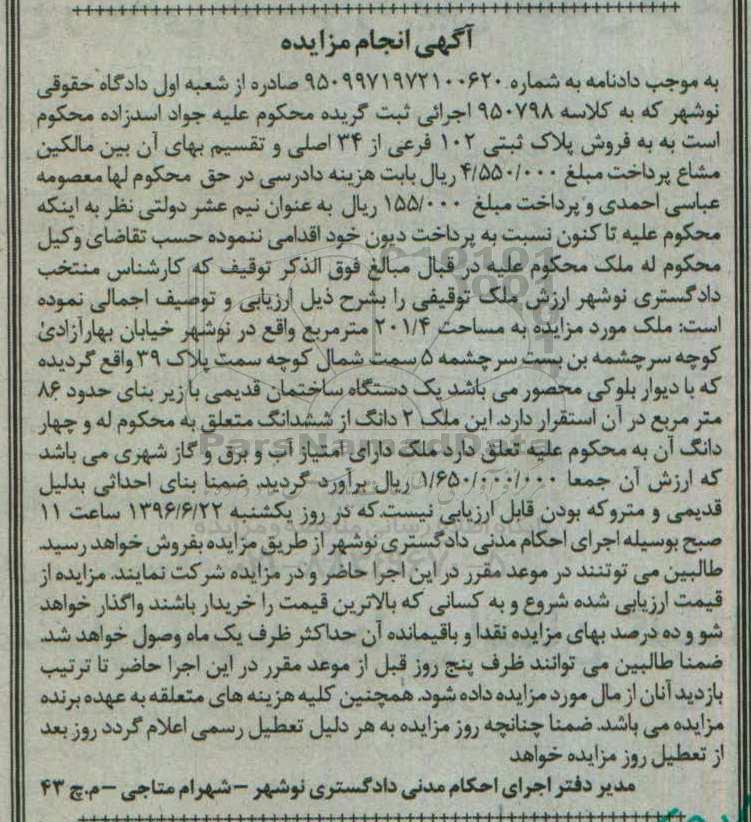 آگهی انجام مزایده
به موجب دادنامه به شماره ۹۵۰۹۹۷۱۹۷۲۱۰۰۶۲۰ صادره از شعبه اول دادگاه حقوقی
نوشهر که به کلاسه ۹۵۰۷۹۸ اجرائی ثبت گریده محکوم علیه جواد اسدزاده محکوم
است به به فروش پلاک ثبتی ۱۰۲ فرعی از ۳۴ اصلی و تقسیم بهای آن بین مالکین
مشاع پرداخت مبلغ ۴/۵۵۰/۰۰۰ ریال بابت هزینه دادرسی در حق محکوم لها معصومه
عباسی احمدی و پرداخت مبلغ ۱۵۵/۰۰۰ ریال به عنوان نیم عشر دولتی نظر به اینکه
محکوم علیه تا کنون نسبت به پرداخت دیون خود اقدامی ننموده حسب تقاضای وکیل
محکوم له ملک محکوم علیه در قبال مبالغ فوق الذکر توقیف که کارشناس منتخب
دادگستری نوشهر ارزش ملک توقیفی را بشرح ذیل ارزیابی و توصیف اجمالی نموده
است: ملک مورد مزایده به مساحت ۲۰۱/۴ مترمربع واقع در نوشهر خیابان بهارآزادی
کوچه سرچشمه بن بست سرچشمه ۵ سمت شمال کوچه سمت پلاک ۳۹ واقع گردیده
که با دیوار بلوکی محصور می باشد یک دستگاه ساختمان قدیمی با زیر بنای حدود ۸۶
متر مربع در آن استقرار دارد. این ملک ۲ دانگ از ششدانگ متعلق به محکوم له و چهار
دانگ آن به محکوم علیه تعلق دارد ملک دارای امتیاز آب و برق و گاز شهری می باشد
که ارزش آن جمعا ۱/۶۵۰/۰۰۰/۰۰۰ ریال برآورد گردید. ضمنا بنای احداثی بدلیل
قدیمی و متروکه بودن قابل ارزیابی نیست.که در روز یکشنبه ۱۳۹۶/۶/۲۲ ساعت ۱۱
صبح بوسیله اجرای احکام مدنی دادگستری نوشهر از طریق مزایده بفروش خواهد رسید.
طالبین می توتنند در موعد مقرر در این اجرا حاضر و در مزایده شرکت نمایند. مزایده از
قیمت ارزیابی شده شروع و به کسانی که بالاترین قیمت را خریدار باشند واگذار خواهد
شو و ده درصد بهای مزایده نقدا و باقیمانده آن حداکثر ظرف یک ماه وصول خواهد شد.
ضمنا طالبین می توانند ظرف پنج روز قبل از موعد مقرر در این اجرا حاضر تا ترتیب
بازدید آنان از مال مورد مزایده داده شود. همچنین کلیه هزینه های متعلقه به عهده برنده
مزایده می باشد. ضمنا چنانچه روز مزایده به هر دلیل تعطیل رسمی اعلام گردد روز بعد
از تعطیل روز مزایده خواهد
مدیر دفتر اجرای احکام مدنی دادگستری نوشهر – شهرام متاجی – م.چ ۴۳
ParsNamadData